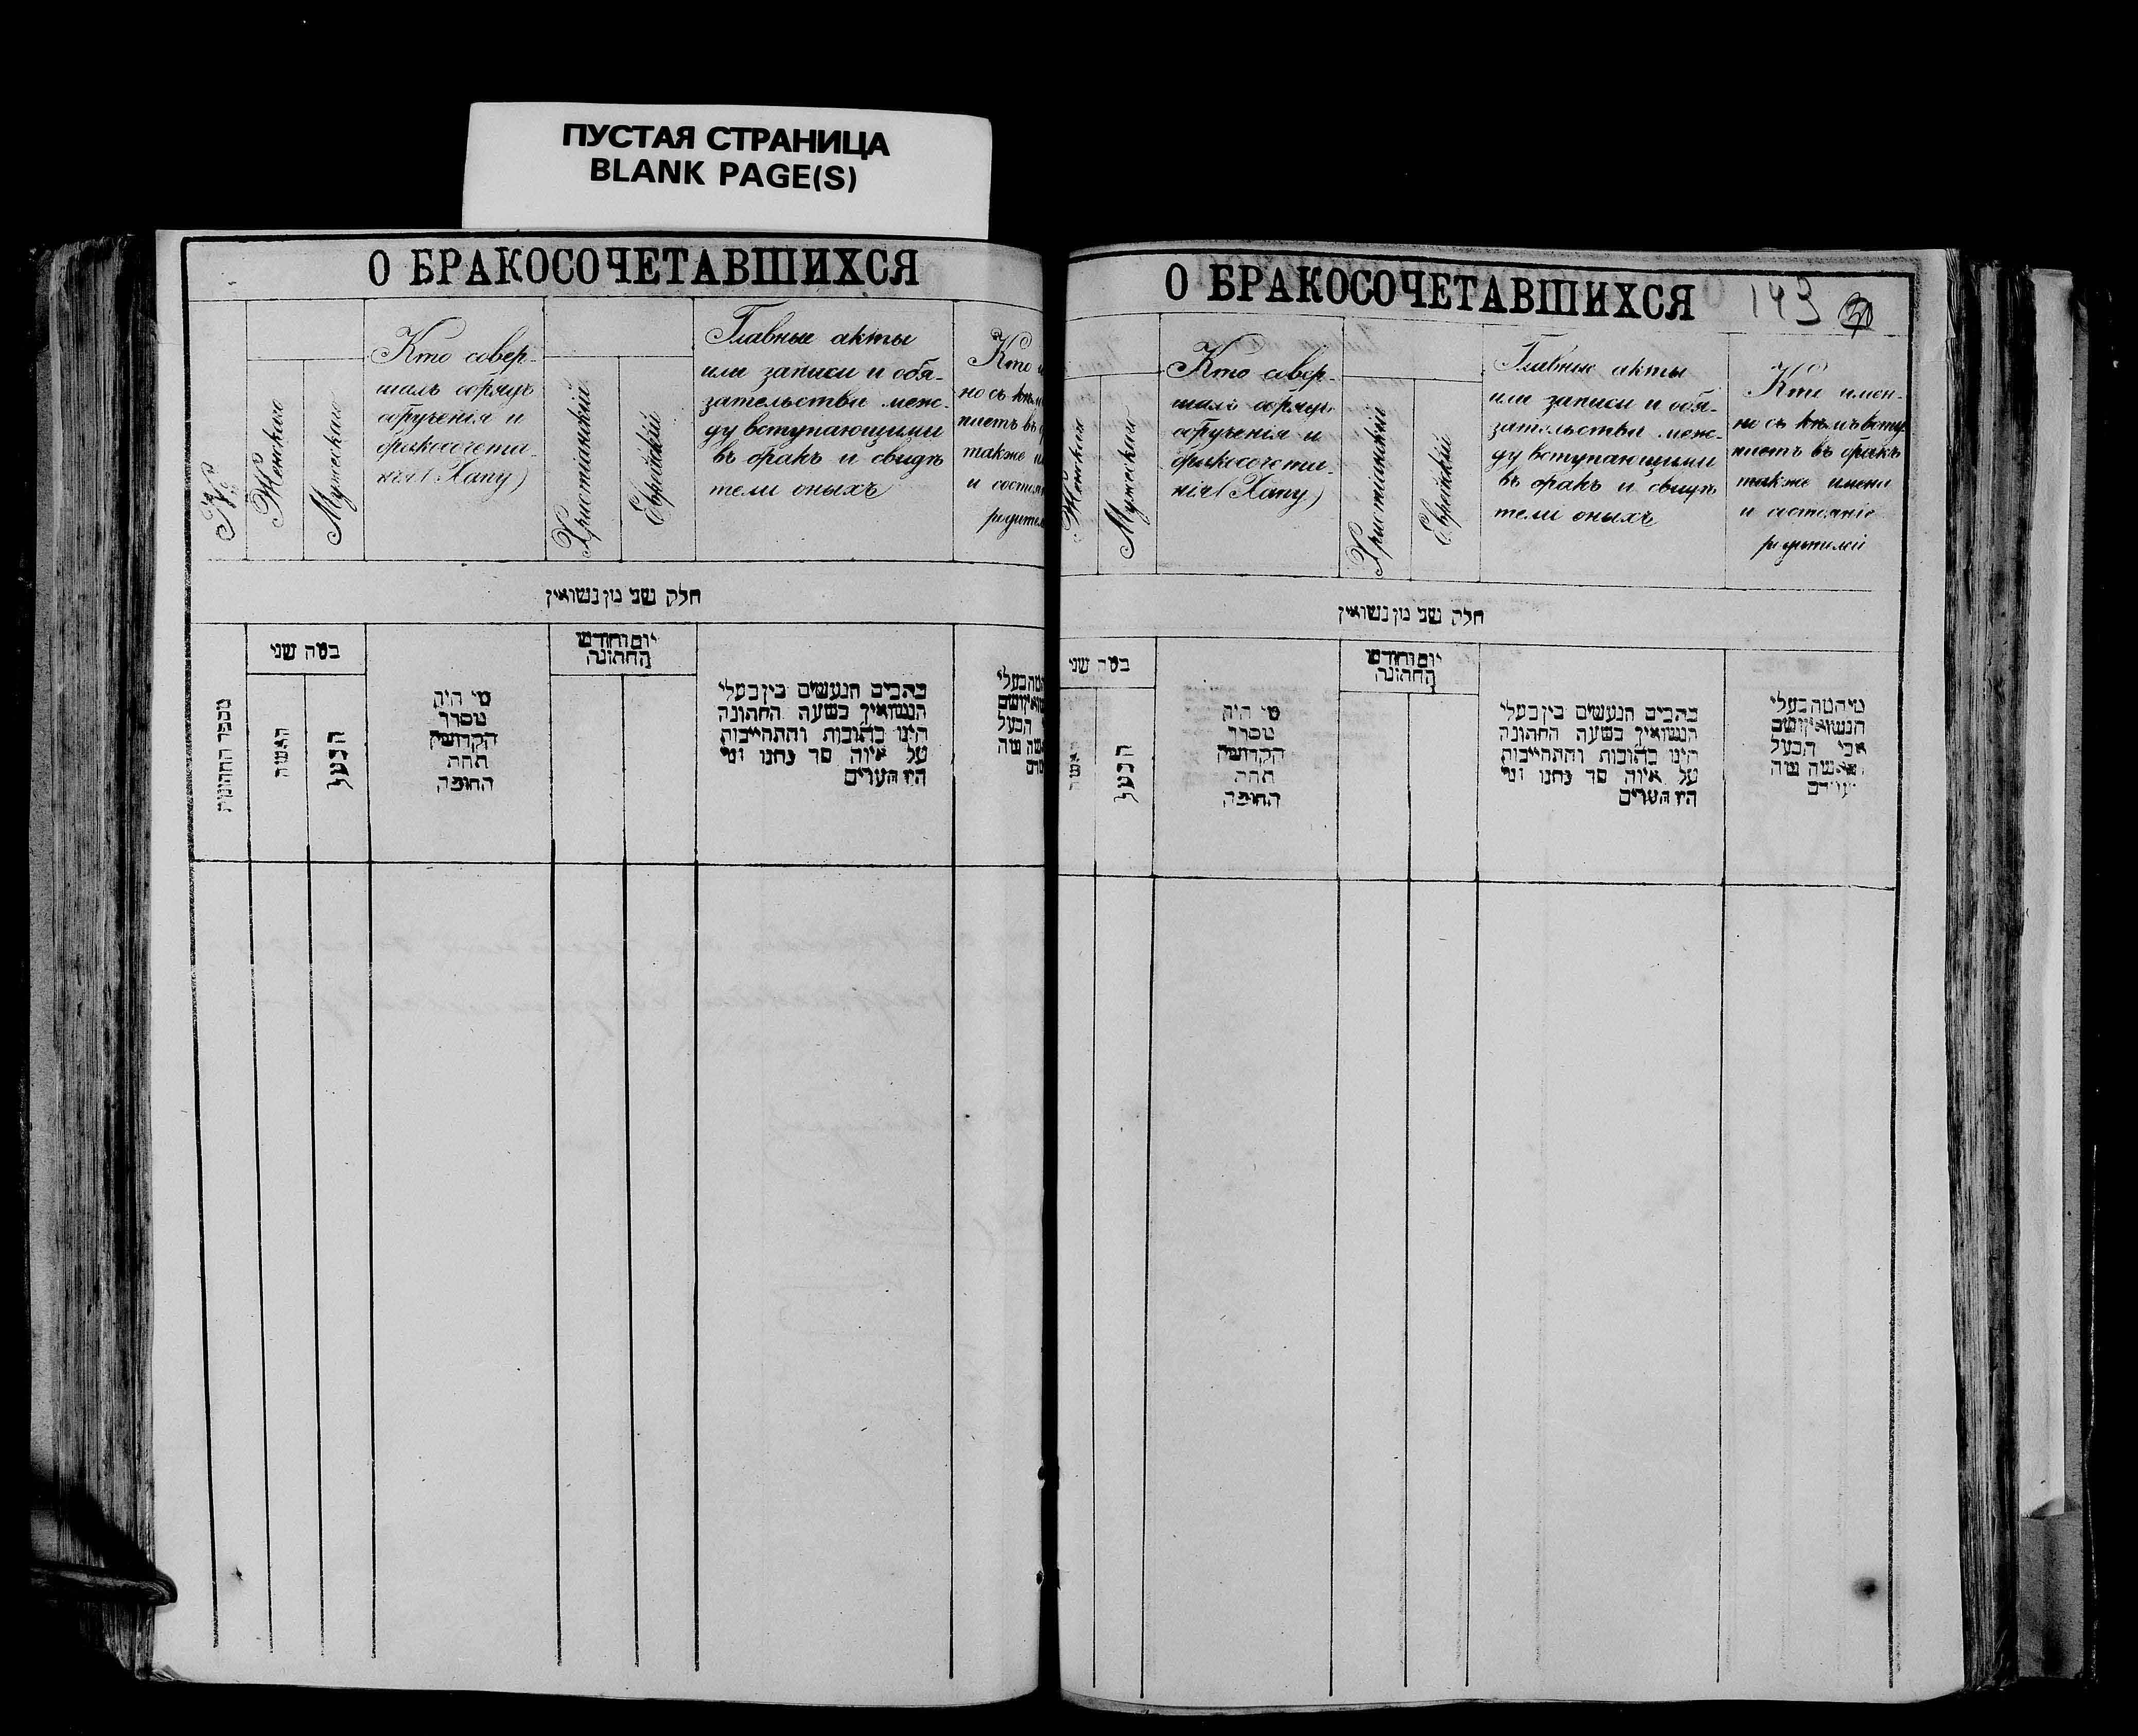 ПУСТАЯ СТРАНИЦА
BLANK PAGE(S)
О БРАКОСОЧЕТАВШИХСЯ
№
Женская
Мужеская
Кто совер-
шалъ обрядъ
обрученія и
бракосочета-
нія (Хапу)
Христіанскій
Еврейскій
Главные акты
или записи и обя-
зательства меж-
ду вступающими
въ бракъ и свидѣ
тели оныхъ
Кто
но съ
паетъ въ
также
и
חלק שני מן נשואין
מספר החתונות
בטה שני
האשה
הבעל
מי היה
מסדר
הקדושין
תחת
החופה
יום וחודש
החתונה
כתבים הנעשים בין בעלי
הנשואין בשעה החתונה
היינו כתובות והתחייבות
על איזה סך נתנו ומי
היו העדים
О БРАКОСОЧЕТАВШИХСЯ
143
Женская
Мужеская
Кто совер-
шалъ обрядъ
обрученія и
бракосочета-
нія (Хапу)
Христіанскій
Еврейскій
Главные акты
или записи и обя-
зательства меж-
ду вступающими
въ бракъ и свидѣ
тели оныхъ
Кто имен-
но съ кѣмъ всту
паетъ въ бракъ
также имена
и состояніе
родителей
חלק שני מן נשואין
בטה שני
הבעל
מי היה
מסדר
הקדושין
תחת
החופה
יום וחודש
החתונה
כתבים הנעשים בין בעלי
הנשואין בשעה החתונה
היינו כתובות והתחייבות
על איזה סך נתנו ומי
היו העדים
מי המה בעלי
הנשואין ושם
אבי הבעל